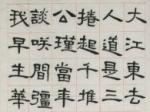 大江東去
人道是三
捲起千堆
公瑾當年
談咲間彊
我早生華